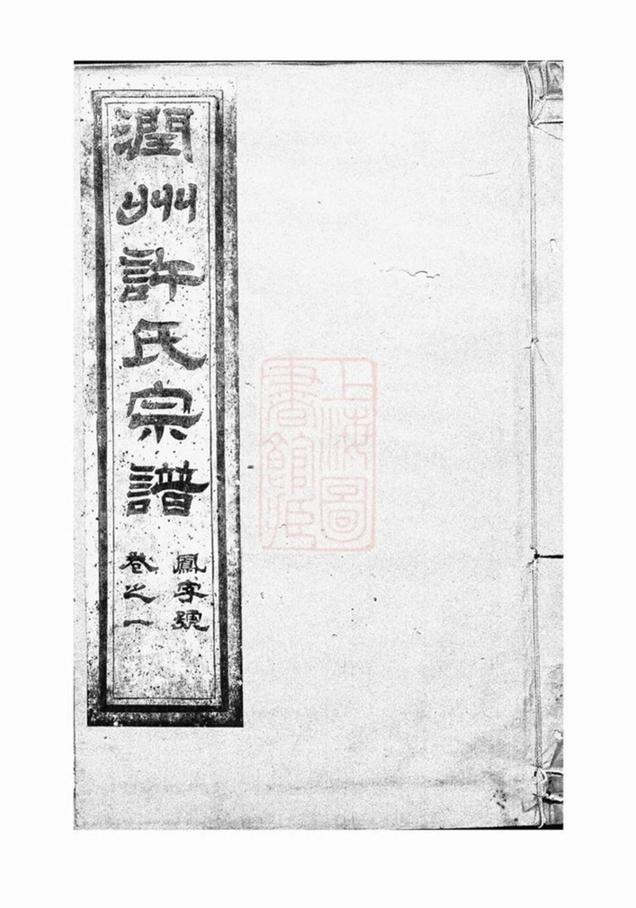 潤州許氏宗譜
鳳字號
卷之一
上海圖
書館藏